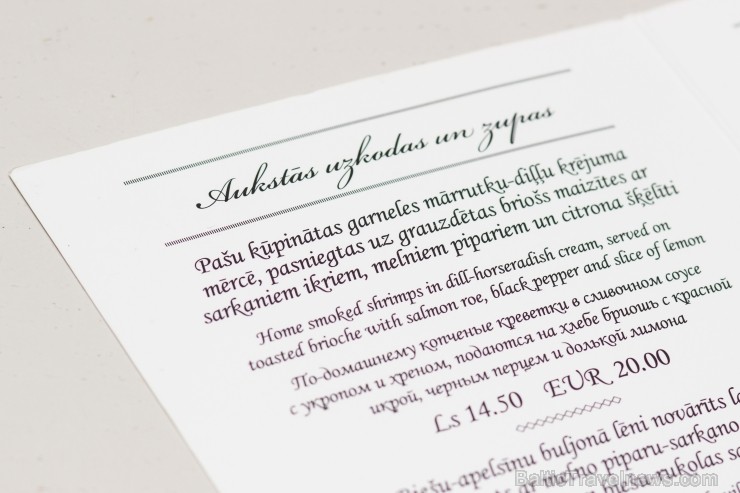 Aukstās uzkodas un zupas
Pašu kūpinātas garneles mārrutku-diļļu krējuma
mērcē, pasniegtas uz grauzdētas briošs maizītes ar
sarkaniem ikriem, melniem pipariem un citrona šķēlīti
Home smoked shrimps in dill-horseradish cream, served on
toasted brioche with salmon roe, black pepper and slice of lemon
По-домашнему копченые креветки в сливочном соусе
с укропом и хреном, подаются на хлебе бриошь с красной
икрой, черным перцем и долькой лимона
Ls 14.50 EUR 20.00
buljonā lēni novārīts
ar melno piparu-sarkano
rukolas
BalticTravelnews.com